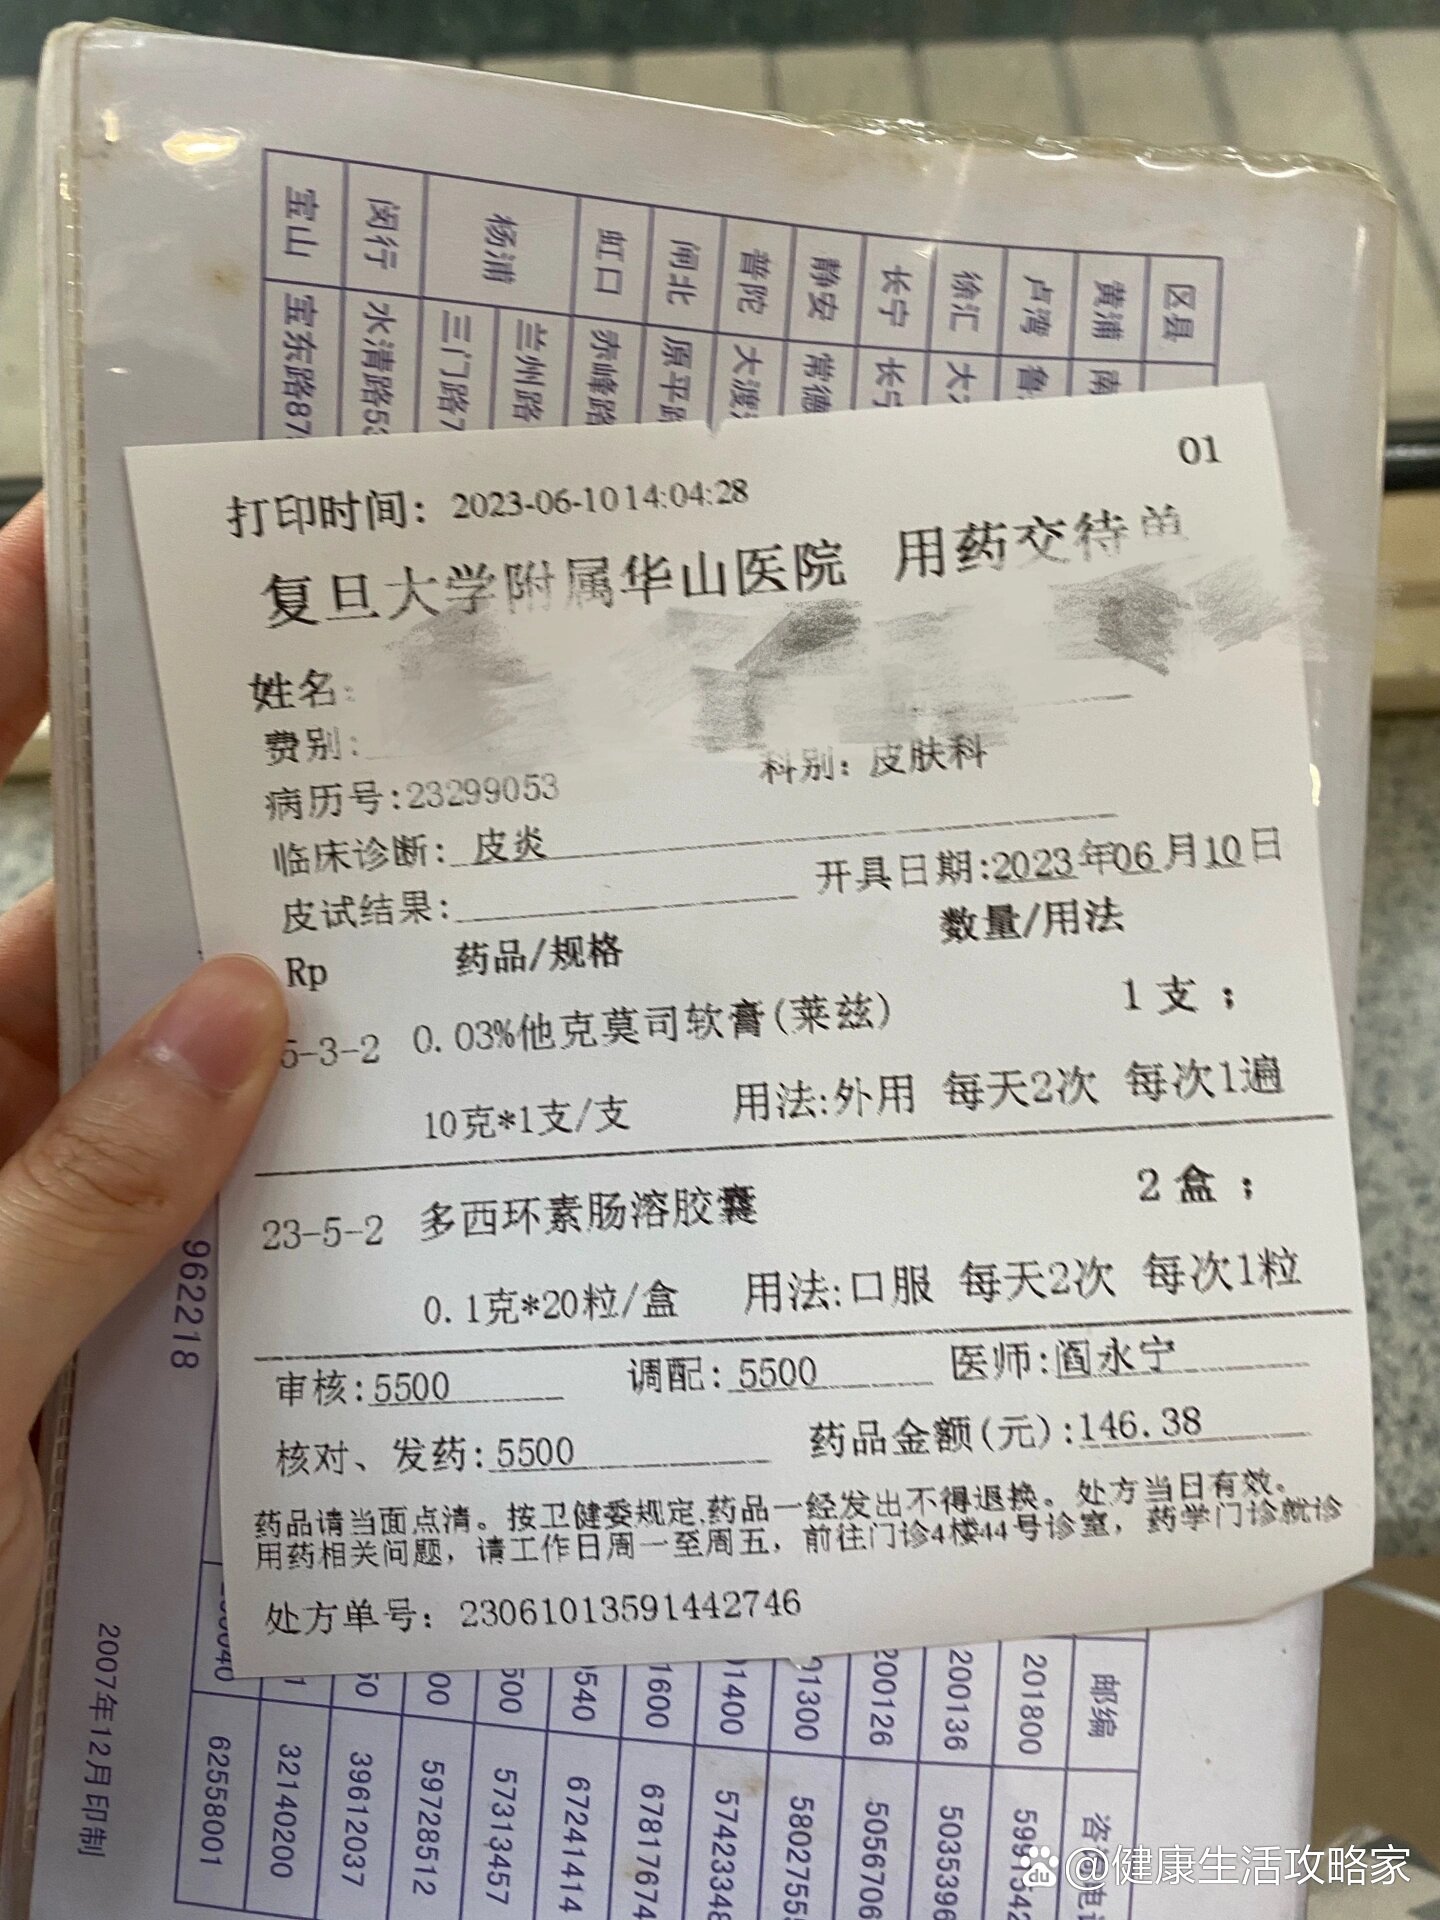 区县
黄浦
卢湾
徐汇
长宁
静安
普陀
闸北
虹口
杨浦
闵行
宝山
南
鲁
大
长宁
常德
大渡
原平路
赤峰路
兰州路
三门路7
水清路53
宝东路87
01
打印时间：2023-06-10 14:04:28
复旦大学附属华山医院 用药交待单
姓名：
费别：
科别：皮肤科
病历号:23299053
临床诊断：皮炎
皮试结果：
开具日期:2023年06月10日
Rp 药品/规格 数量/用法
5-3-2 0.03%他克莫司软膏(莱兹) 1支；
10克*1支/支 用法:外用 每天2次 每次1遍
23-5-2 多西环素肠溶胶囊 2盒；
0.1克*20粒/盒 用法:口服 每天2次 每次1粒
审核:5500 调配：5500 医师:阎永宁
核对、发药:5500 药品金额(元):146.38
药品请当面点清。按卫健委规定,药品一经发出不得退换。处方当日有效。
用药相关问题，请工作日周一至周五，前往门诊4楼44号诊室，药学门诊就诊
处方单号：23061013591442746
962218
2007年12月印制
邮编
201800
200136
200126
01300
01400
1600
540
500
00
50
1
咨
电话
5991542
5035396
5056706
5802755
57423348
67817674
67241414
57313457
59728512
39612037
32140200
62558001
@健康生活攻略家